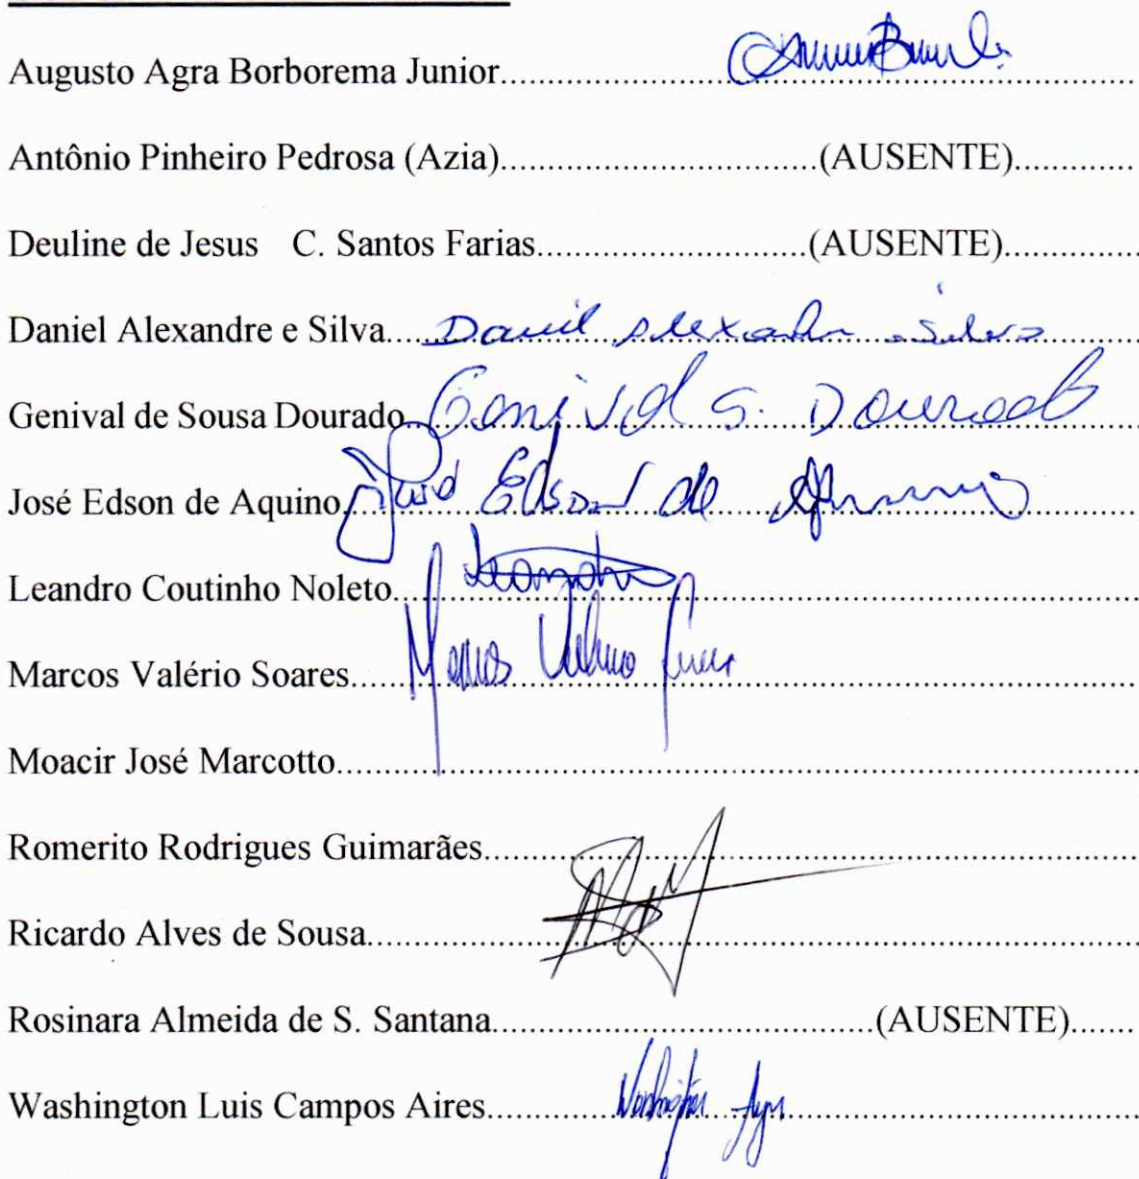 Augusto Agra Borborema Junior
Antônio Pinheiro Pedrosa (Azia)..............................(AUSENTE)
Deuline de Jesus C. Santos Farias..........................(AUSENTE)
Daniel Alexandre e Silva..... Daniel Alexandre Silva
Genival de Sousa Dourado Genival S. Dourado
José Edson de Aquino José Edson de Aquino
Leandro Coutinho Noleto.... Leandro
Marcos Valério Soares..... Marcos Valério Soares
Moacir José Marcotto
Romerito Rodrigues Guimarães
Ricardo Alves de Sousa
Rosinara Almeida de S. Santana....................................(AUSENTE)
Washington Luis Campos Aires............ Washington